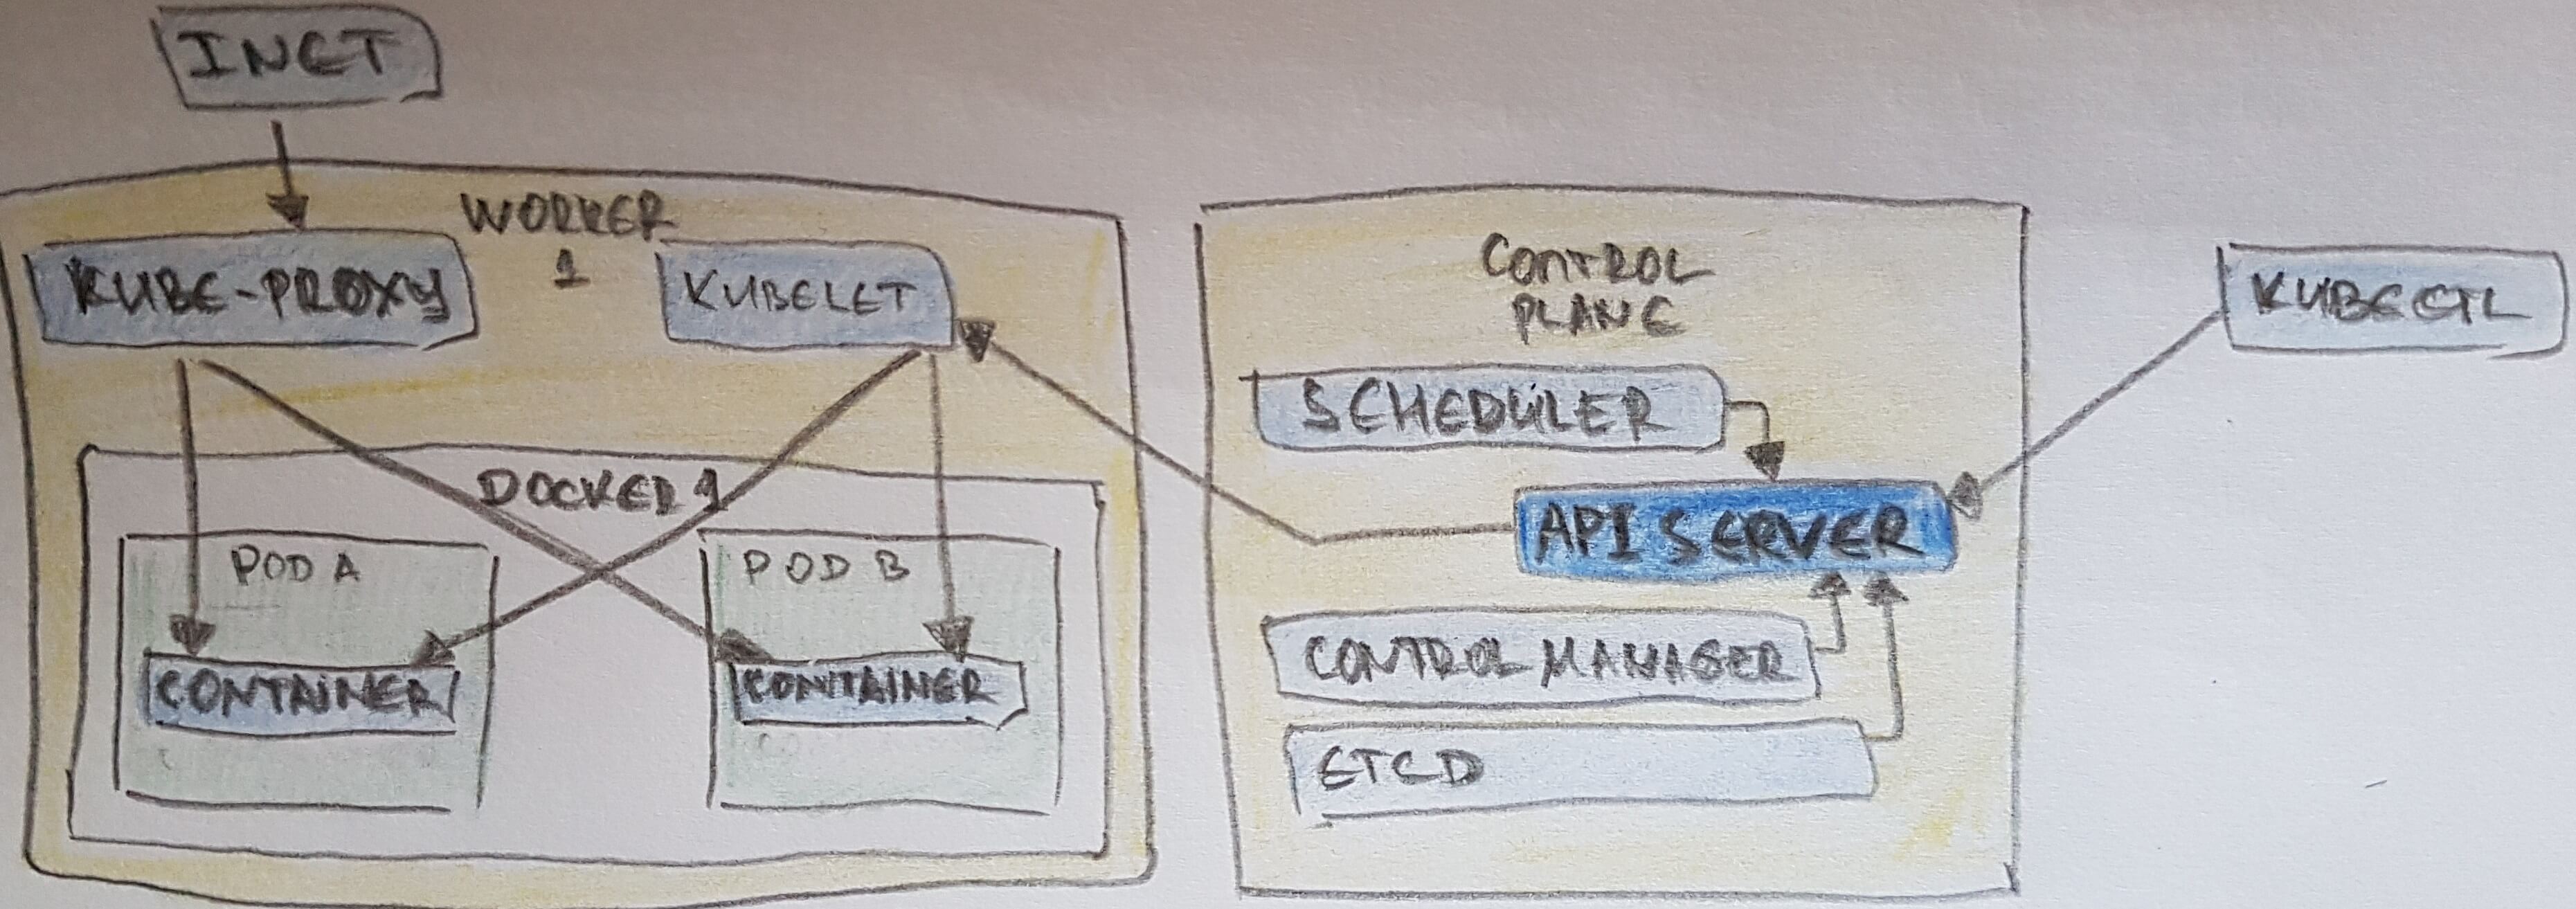 INET
WORKER
1
KUBE-PROXY
KUBELET
DOCKER 1
POD A
POD B
CONTAINER
CONTAINER
CONTROL
PLANE
SCHEDULER
API SERVER
CONTROL MANAGER
ETCD
KUBECTL